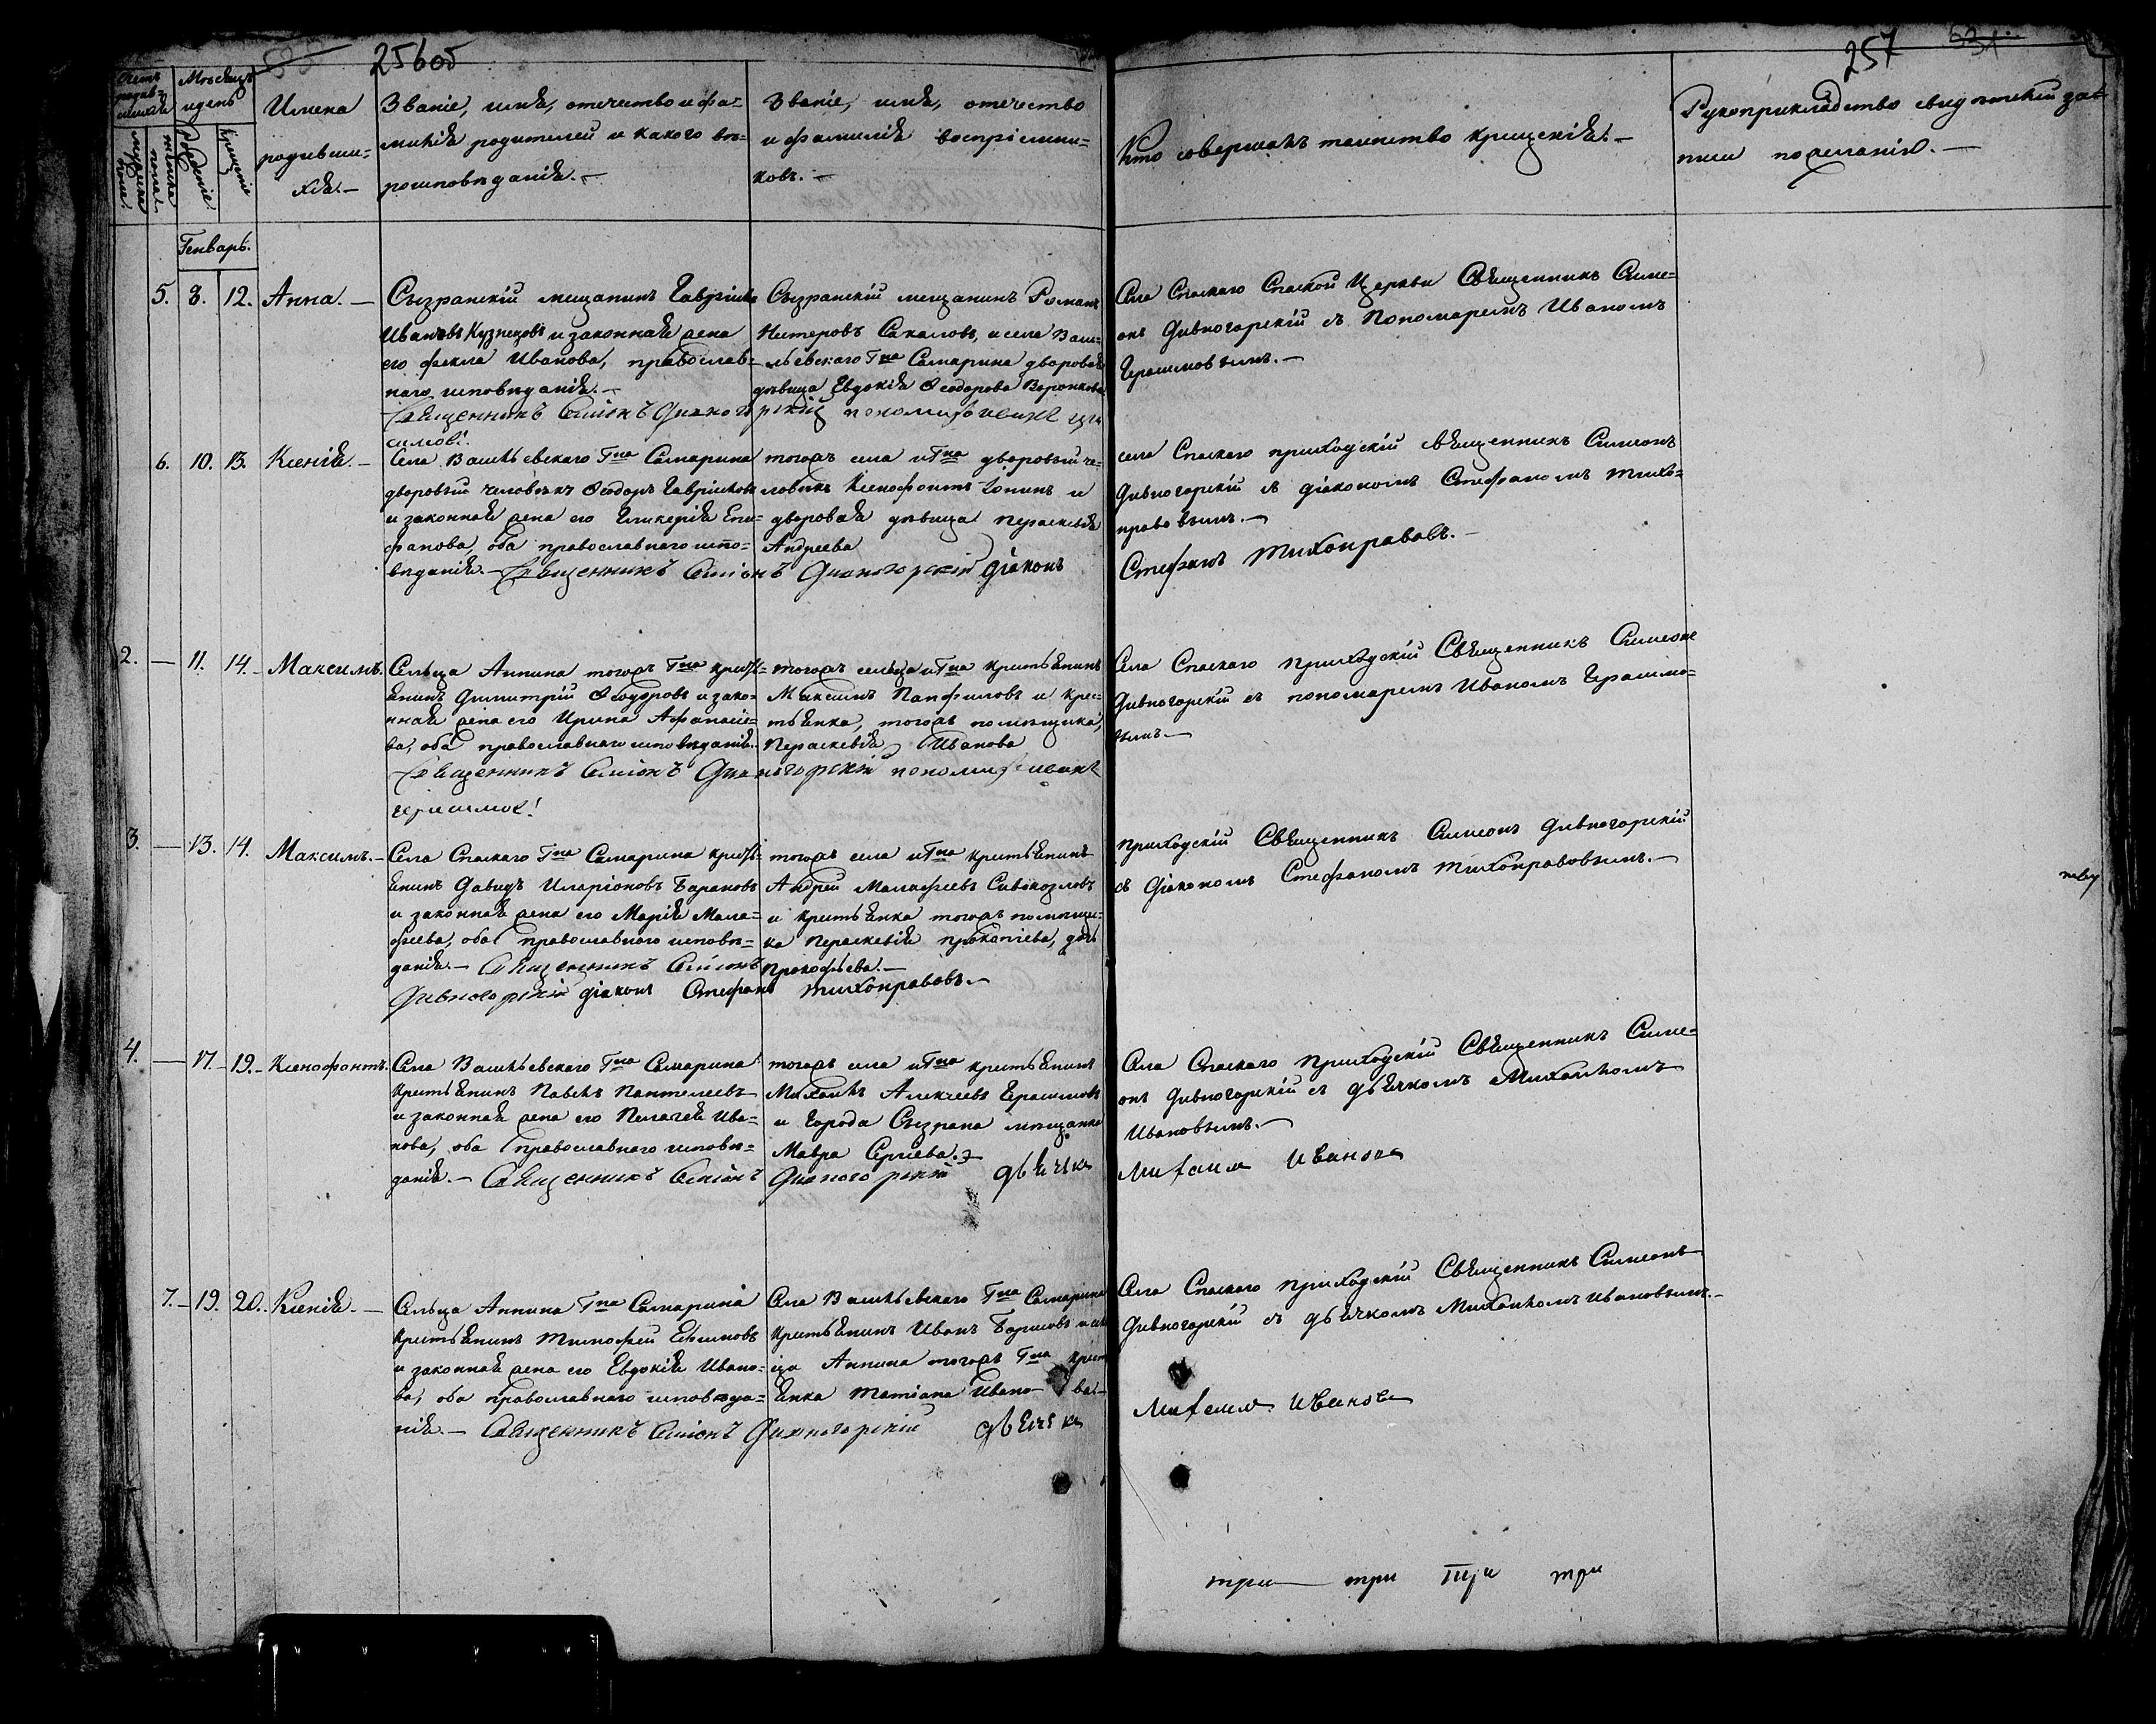 256об
257
Счетъ родив-шихся
Мѣсяцъ и день
мужеска пола
женска пола
Рожденіе.
Крещеніе
Имена
родивши=
хся.—
Званіе, имя, отечество и фа=
милія родителей и какого вѣ=
роисповѣданія.—
Званіе, имя, отечество
и фамилія воспріемни=
ковъ.—
Кто совершалъ таинство крещенія.—
Рукоприкладство свидѣтелей за
писи по желанію.—
Генварь.
5. 8. 12. Анна.—
Сызранскій мещанинъ Гавріилъ
Ивановъ Кузнецовъ и законная жена
его Фекла Иванова, православ=
наго исповѣданія.—
Сызранскій мещанинъ Романъ
Нитеровъ Сакаловъ, и села Васи=
льевскаго Гна Самарина дворовая
дѣвица Евдокія Ѳеодорова Воронкова
Священникъ Симіонъ Дивногорскій пономарь Иванъ Гера
симовъ.
Села Спаскаго Спаской Церкви Священникъ Симе=
онъ Дивногорскій съ Пономаремъ Иваномъ
Герасимовымъ.—
6. 10. 13. Ксенія.—
Села Васильевскаго Гна Самарина
дворовый человѣкъ Ѳеодоръ Гавріиловъ
и законная жена его Гликерія Епи=
фанова, оба православнаго испо=
вѣданія.— Священникъ Симіонъ Дивногорскій діаконъ
тогожъ села и Гна дворовый че=
ловѣкъ Ксенофонтъ Іонинъ и
дворовая дѣвица Пераскевія
Андреева
села Спаскаго приходскій священникъ Симеонъ
Дивногорскій съ діакономъ Стефаномъ Тихо=
нравовымъ.—
Стефанъ Тихонравовъ.—
2. — 11. 14. Максимъ.
Сельца Аннина тогожъ Гна кресть=
янинъ Димитрій Ѳеодоровъ и зако=
нная жена его Ирина Афанасіе=
ва, оба православнаго исповѣданія.
тогожъ сельца и Гна крестьянинъ
Максимъ Панфиловъ и крес=
тьянка, тогожъ помѣщика,
Пераскевія Иванова
Священникъ Симіонъ Дивногорскій пономарь Иванъ
Герасимовъ
Села Спаскаго приходскій Священникъ Симеонъ
Дивногорскій съ пономаремъ Иваномъ Герасимо=
вымъ.—
3. — 13. 14. Максимъ.—
Села Спаскаго Гна Самарина кресть=
янинъ Давидъ Иларіоновъ Барановъ
и законная жена его Марія Мала=
фѣева, оба православнаго исповѣ=
данія.— Священникъ Симіонъ
Дивногорскій діаконъ Стефанъ Тихонравовъ.—
тогожъ села и Гна крестьянинъ
Андрей Малафѣевъ Сивокозловъ
и крестьянка тогожъ помѣщи=
ка Пераскевія Прокопіева, дочь
Прокофьева.—
приходскій Священникъ Симеонъ Дивногорскій
съ Діакономъ Стефаномъ Тихонравовымъ.—
4. — 17. 19. Ксенофонтъ.
Села Васильевскаго Гна Самарина
крестьянинъ Павелъ Пантелеевъ
и законная жена его Пелагея Ива=
нова, оба православнаго исповѣ=
данія.— Священникъ Симіонъ Дивногорскій дьячекъ
тогожъ села и Гна крестьянинъ
Михаилъ Алексеевъ Герасимовъ
и города Сызрана мѣщанка
Мавра Сергіева.
Села Спаскаго приходскій Священникъ Симе=
онъ Дивногорскій съ дьячкомъ Михаиломъ
Ивановымъ.—
Михаилъ Ивановъ
7. — 19. 20. Ксенія.—
Сельца Аннина Гна Самарина
крестьянинъ Тимофей Ефимовъ
и законная жена его Евдокія Ивано=
ва, оба православнаго исповѣда=
нія.— Священникъ Симіонъ Дивногорскій дьячекъ
Села Васильевскаго Гна Самарина
крестьянинъ Иванъ Борисовъ и сель
ца Аннина тогожъ Гна крест
янка Татіана Ивано ва—
Села Спаскаго приходскій Священникъ Симеонъ
Дивногорскій съ дьячкомъ Михаиломъ Ивановымъ.—
Михаилъ Ивановъ
три три три три